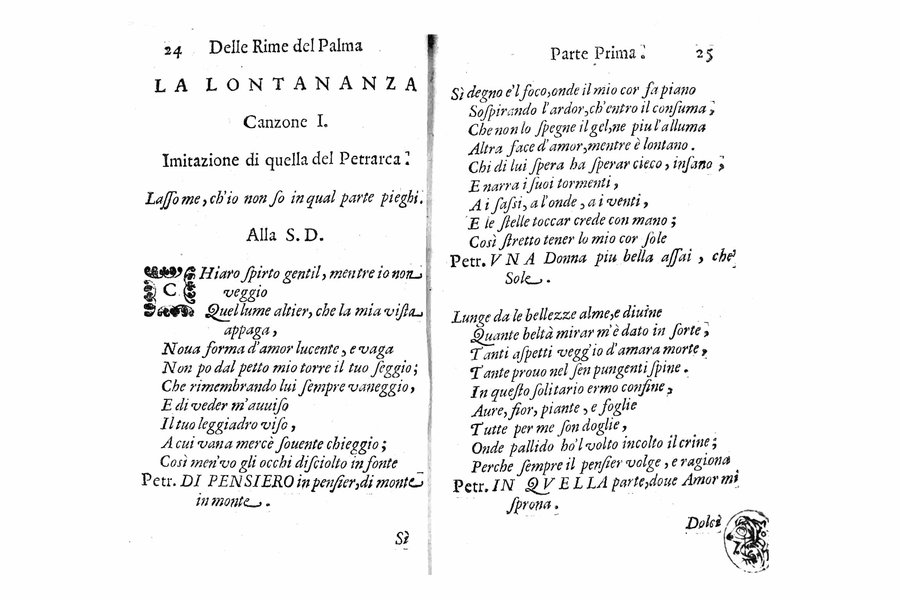 24 Delle Rime del Palma
LA LONTANANZA
Canzone I.
Imitazione di quella del Petrarca.
Laſſo me, ch'io non ſo in qual parte pieghi.
Alla S. D.
CHiaro ſpirto gentil, mentre io non
veggio
Quel lume altier, che la mia viſta
appaga,
Noua forma d'amor lucente, e vaga
Non po dal petto mio torre il tuo ſeggio;
Che rimembrando lui ſempre vaneggio,
E di veder m'auuiſo
Il tuo leggiadro viſo,
A cui vana mercè ſouente chieggio;
Così men'vo gli occhi diſciolto in fonte
Petr. DI PENSIERO in penſier, di monte
in monte.
Sì
Parte Prima. 25
Sì degno e'l foco, onde il mio cor fa piano
Soſpirando l'ardor, ch'entro il conſuma,
Che non lo ſpegne il gel, ne piu l'alluma
Altra face d'amor, mentre è lontano.
Chi di lui ſpera ha ſperar cieco, inſano;
E narra i ſuoi tormenti,
A i ſaſsi, a l'onde, a i venti,
E le ſtelle toccar crede con mano;
Così ſtretto tener lo mio cor ſole
Petr. VNA Donna piu bella aſſai, che'l
Sole.
Lunge da le bellezze alme, e diuine
Quante beltà mirar m'è dato in ſorte,
Tanti aſpetti vegg'io d'amara morte,
Tante prouo nel ſen pungenti ſpine.
In queſto ſolitario ermo confine,
Aure, fior, piante, e foglie
Tutte per me ſon doglie,
Onde pallido ho'l volto incolto il crine;
Perche ſempre il penſier volge, e ragiona
Petr. IN QVELLA parte, doue Amor mi
ſprona.
Dolci